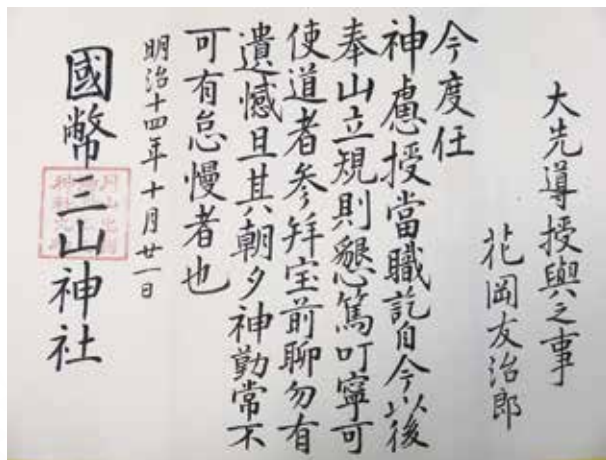 大先導授與之事
花岡友治郎
今度任
神慮授當職訖自今以後
奉山立規則懇篤叮寧可
使道者参拜宝前聊勿有
遺憾且其朝夕神勤常不
可有怠慢者也
明治十四年十月廿一日
國幣三山神社